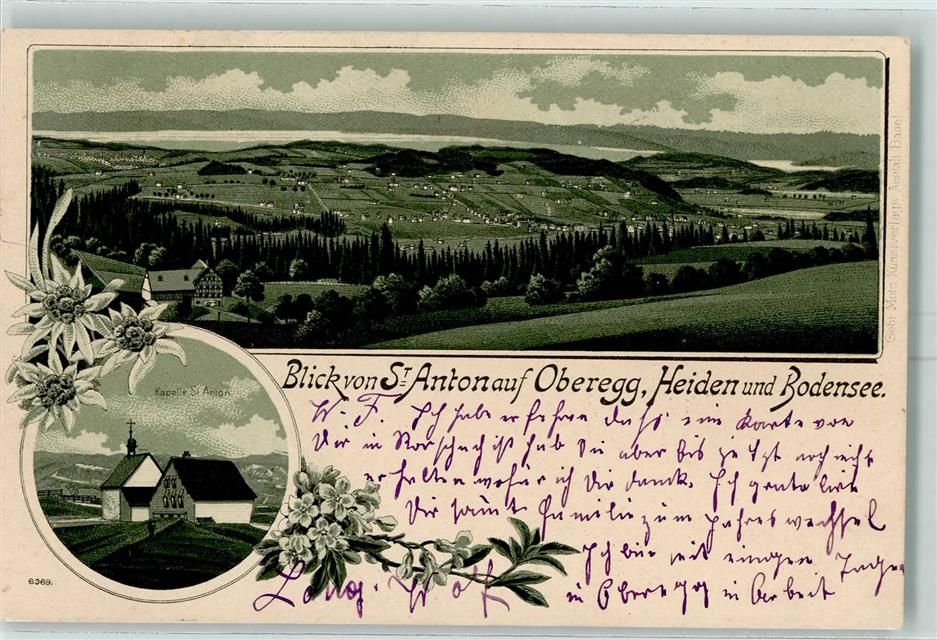 Gebr. Metz Kunstverlags-Anstalt Basel
Blick von St. Anton auf Oberegg, Heiden und Bodensee.
Kapelle St. Anton.
W. F. Ich habe erfahren dass eine Karte von
Dir in Rorschach ist hab Sie aber bis jetzt noch nicht
erhalten wofür ich Dir danke. Ich gratuliere
Dir samt Familie zum Jahreswechsel
Ich bin seit einigen Tagen
in Oberegg in Arbeit
6369.